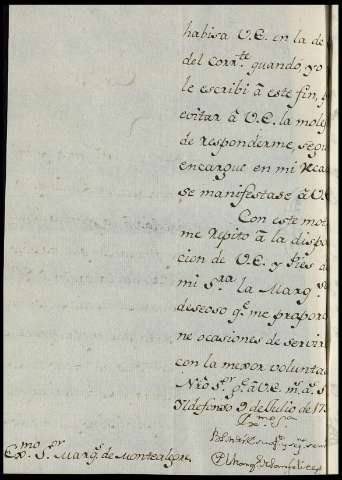 habisa V.E. en la de
del corr.te quando, yo
le escribi â este fin, p
evitar â V.E. la moles
de responderme, segu
encargue en mi Reca
se manifestase â V.E
Con este mot
me repito â la dispo
cion de V.E. y Pies de
mi S.ra la Marq.sa
deseoso q.e me propor
ne ocasiones de servir
con la mexor volunta
Nro S.or g.e â V.E. m.s a.s S
Yldefonso 9 de Julio de 17
Ex.mo S.or
Ex.mo S.or Marq.s de Montealegre